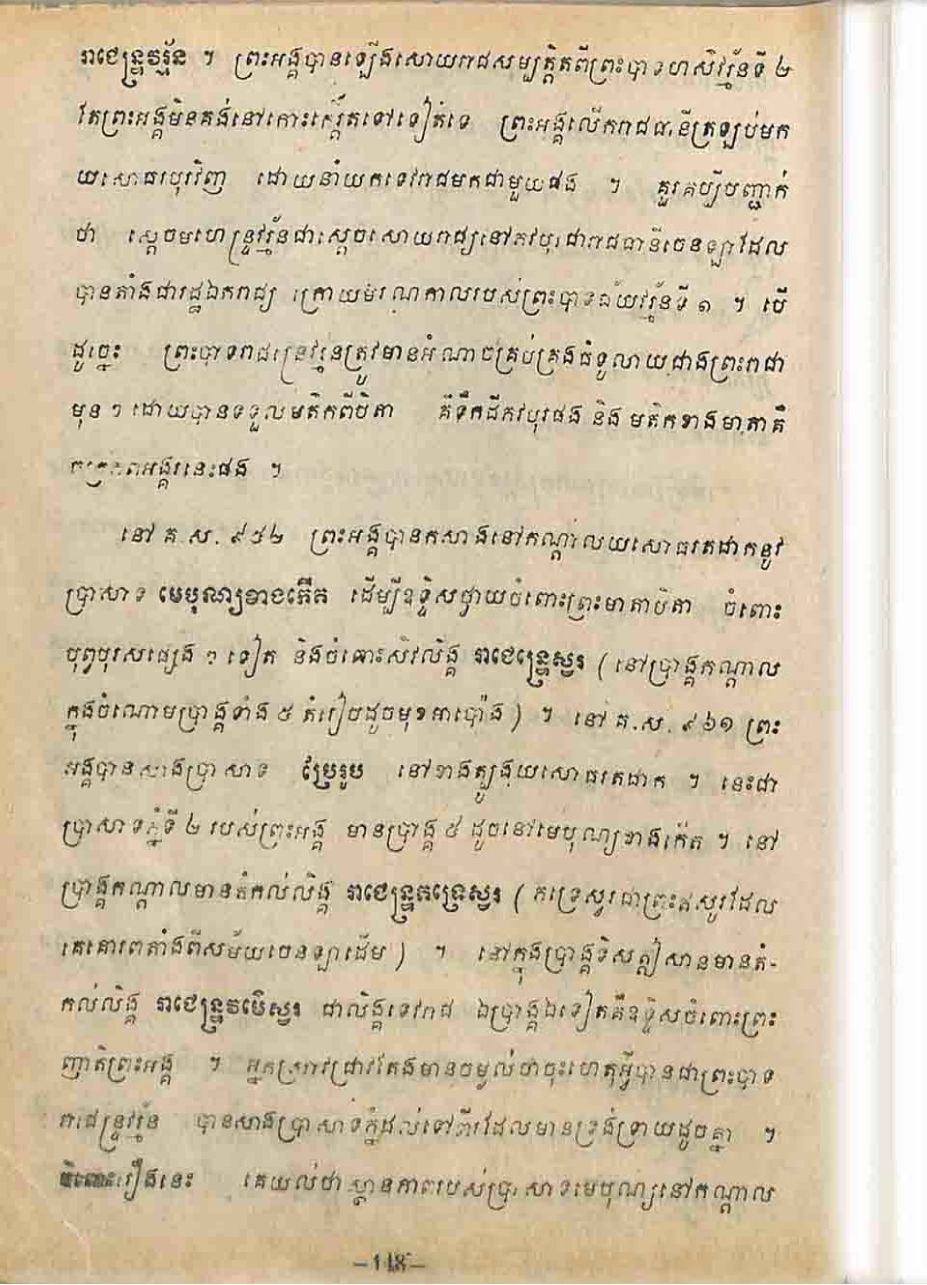 រាជេន្ទ្រវរ្ម័ន ។ ព្រះអង្គបានឡើងសោយរាជសម្បត្តិតពីព្រះបាទហសិវរ្ម័នទី ២
តែព្រះអង្គមិនគង់នៅកោះកេរ្តិ៍តទៅទៀតទេ ព្រះអង្គលើករាជធានីត្រឡប់មក
យសោធរបុរវិញ ដោយនាំយកទេវរាជមកជាមួយផង ។ គួរគប្បីបញ្ជាក់
ថា ស្តេចមហេន្ទ្រវរ្ម័នជាស្តេចសោយរាជ្យនៅភវបុរជារាជធានីចេនឡាដែល
បានតាំងជារដ្ឋឯករាជ្យ ក្រោយមរណកាលរបស់ព្រះបាទជ័យវរ្ម័នទី ១ ។ បើ
ដូច្នេះ ព្រះបាទរាជេន្ទ្រវរ្ម័នត្រូវមានអំណាចគ្រប់គ្រងធំទូលាយជាងព្រះរាជា
មុន ៗ ដោយបានទទួលមតិកពីបិតា គឺទឹកដីភវបុរផង និង មតិកខាងមាតាគឺ
ចក្រភពអង្គរនេះផង ។
នៅ គ.ស. ៩៥២ ព្រះអង្គបានកសាងនៅកណ្តាលយសោធរតដាកនូវ
ប្រាសាទ មេបុណ្យខាងកើត ដើម្បីឧទ្ទិសថ្វាយចំពោះព្រះមាតាបិតា ចំពោះ
បុព្វបុរសផ្សេង ៗ ទៀត និងចំពោះសិវលិង្គ រាជេន្ទ្រេស្វរ ( នៅប្រាង្គកណ្តាល
ក្នុងចំណោមប្រាង្គទាំង ៥ តំរៀបដូចមុខអាប៉ោង ) ។ នៅ គ.ស. ៩៦១ ព្រះ
អង្គបានសាងប្រាសាទ ប្រែរូប នៅខាងត្បូងយសោធរតដាក ។ នេះជា
ប្រាសាទភ្នំទី ២ របស់ព្រះអង្គ មានប្រាង្គ ៥ ដូចនៅមេបុណ្យខាងកើត ។ នៅ
ប្រាង្គកណ្តាលមានតំកល់លិង្គ រាជេន្ទ្រភទ្រេស្វរ ( ភទ្រេស្វរជាព្រះឥសូរដែល
គេគោរពតាំងពីសម័យចេនឡាដើម ) ។ នៅក្នុងប្រាង្គទិសឦសានមានតំ-
កល់លិង្គ រាជេន្ទ្រវមើស្វរ ជាលិង្គទេវរាជ ឯប្រាង្គឯទៀតគឺឧទ្ទិសចំពោះព្រះ
ញាតិព្រះអង្គ ។ អ្នកស្រាវជ្រាវតែងមានចម្ងល់ថាចុះហេតុអ្វីបានជាព្រះបាទ
រាជេន្ទ្រវរ្ម័ន បានសាងប្រាសាទភ្នំដល់ទៅពីរដែលមានទ្រង់ទ្រាយដូចគ្នា ។
ចំពោះរឿងនេះ គេយល់ថាស្ថានភាពរបស់ប្រាសាទមេបុណ្យនៅកណ្តាល
-148-